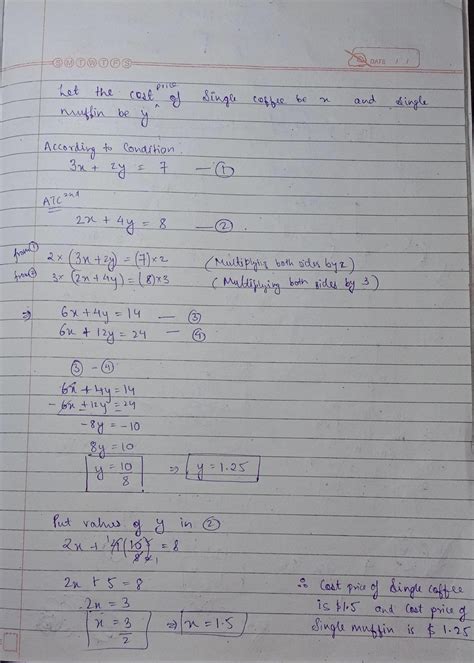 S M T W T F S
DATE / /
Let the cost price of single coffee be x and single
muffin be y
According to Condition
3x + 2y = 7 — ①
ATC 2nd
2x + 4y = 8 — ②
from ① 2 × (3x + 2y) = (7) × 2 (Multiplying both sides by 2)
from ② 3 × (2x + 4y) = (8) × 3 (Multiplying both sides by 3)
⇒ 6x + 4y = 14 — ③
6x + 12y = 24 — ④
③ - ④
6x + 4y = 14
- 6x + 12y = 24
-8y = -10
8y = 10
y = 10/8 ⇒ y = 1.25
Put value of y in ②
2x + 4(10/8) = 8
2x + 5 = 8
2x = 3
x = 3/2 ⇒ x = 1.5
∴ Cost price of Single coffee
is $1.5 and Cost price of
Single muffin is $ 1.25